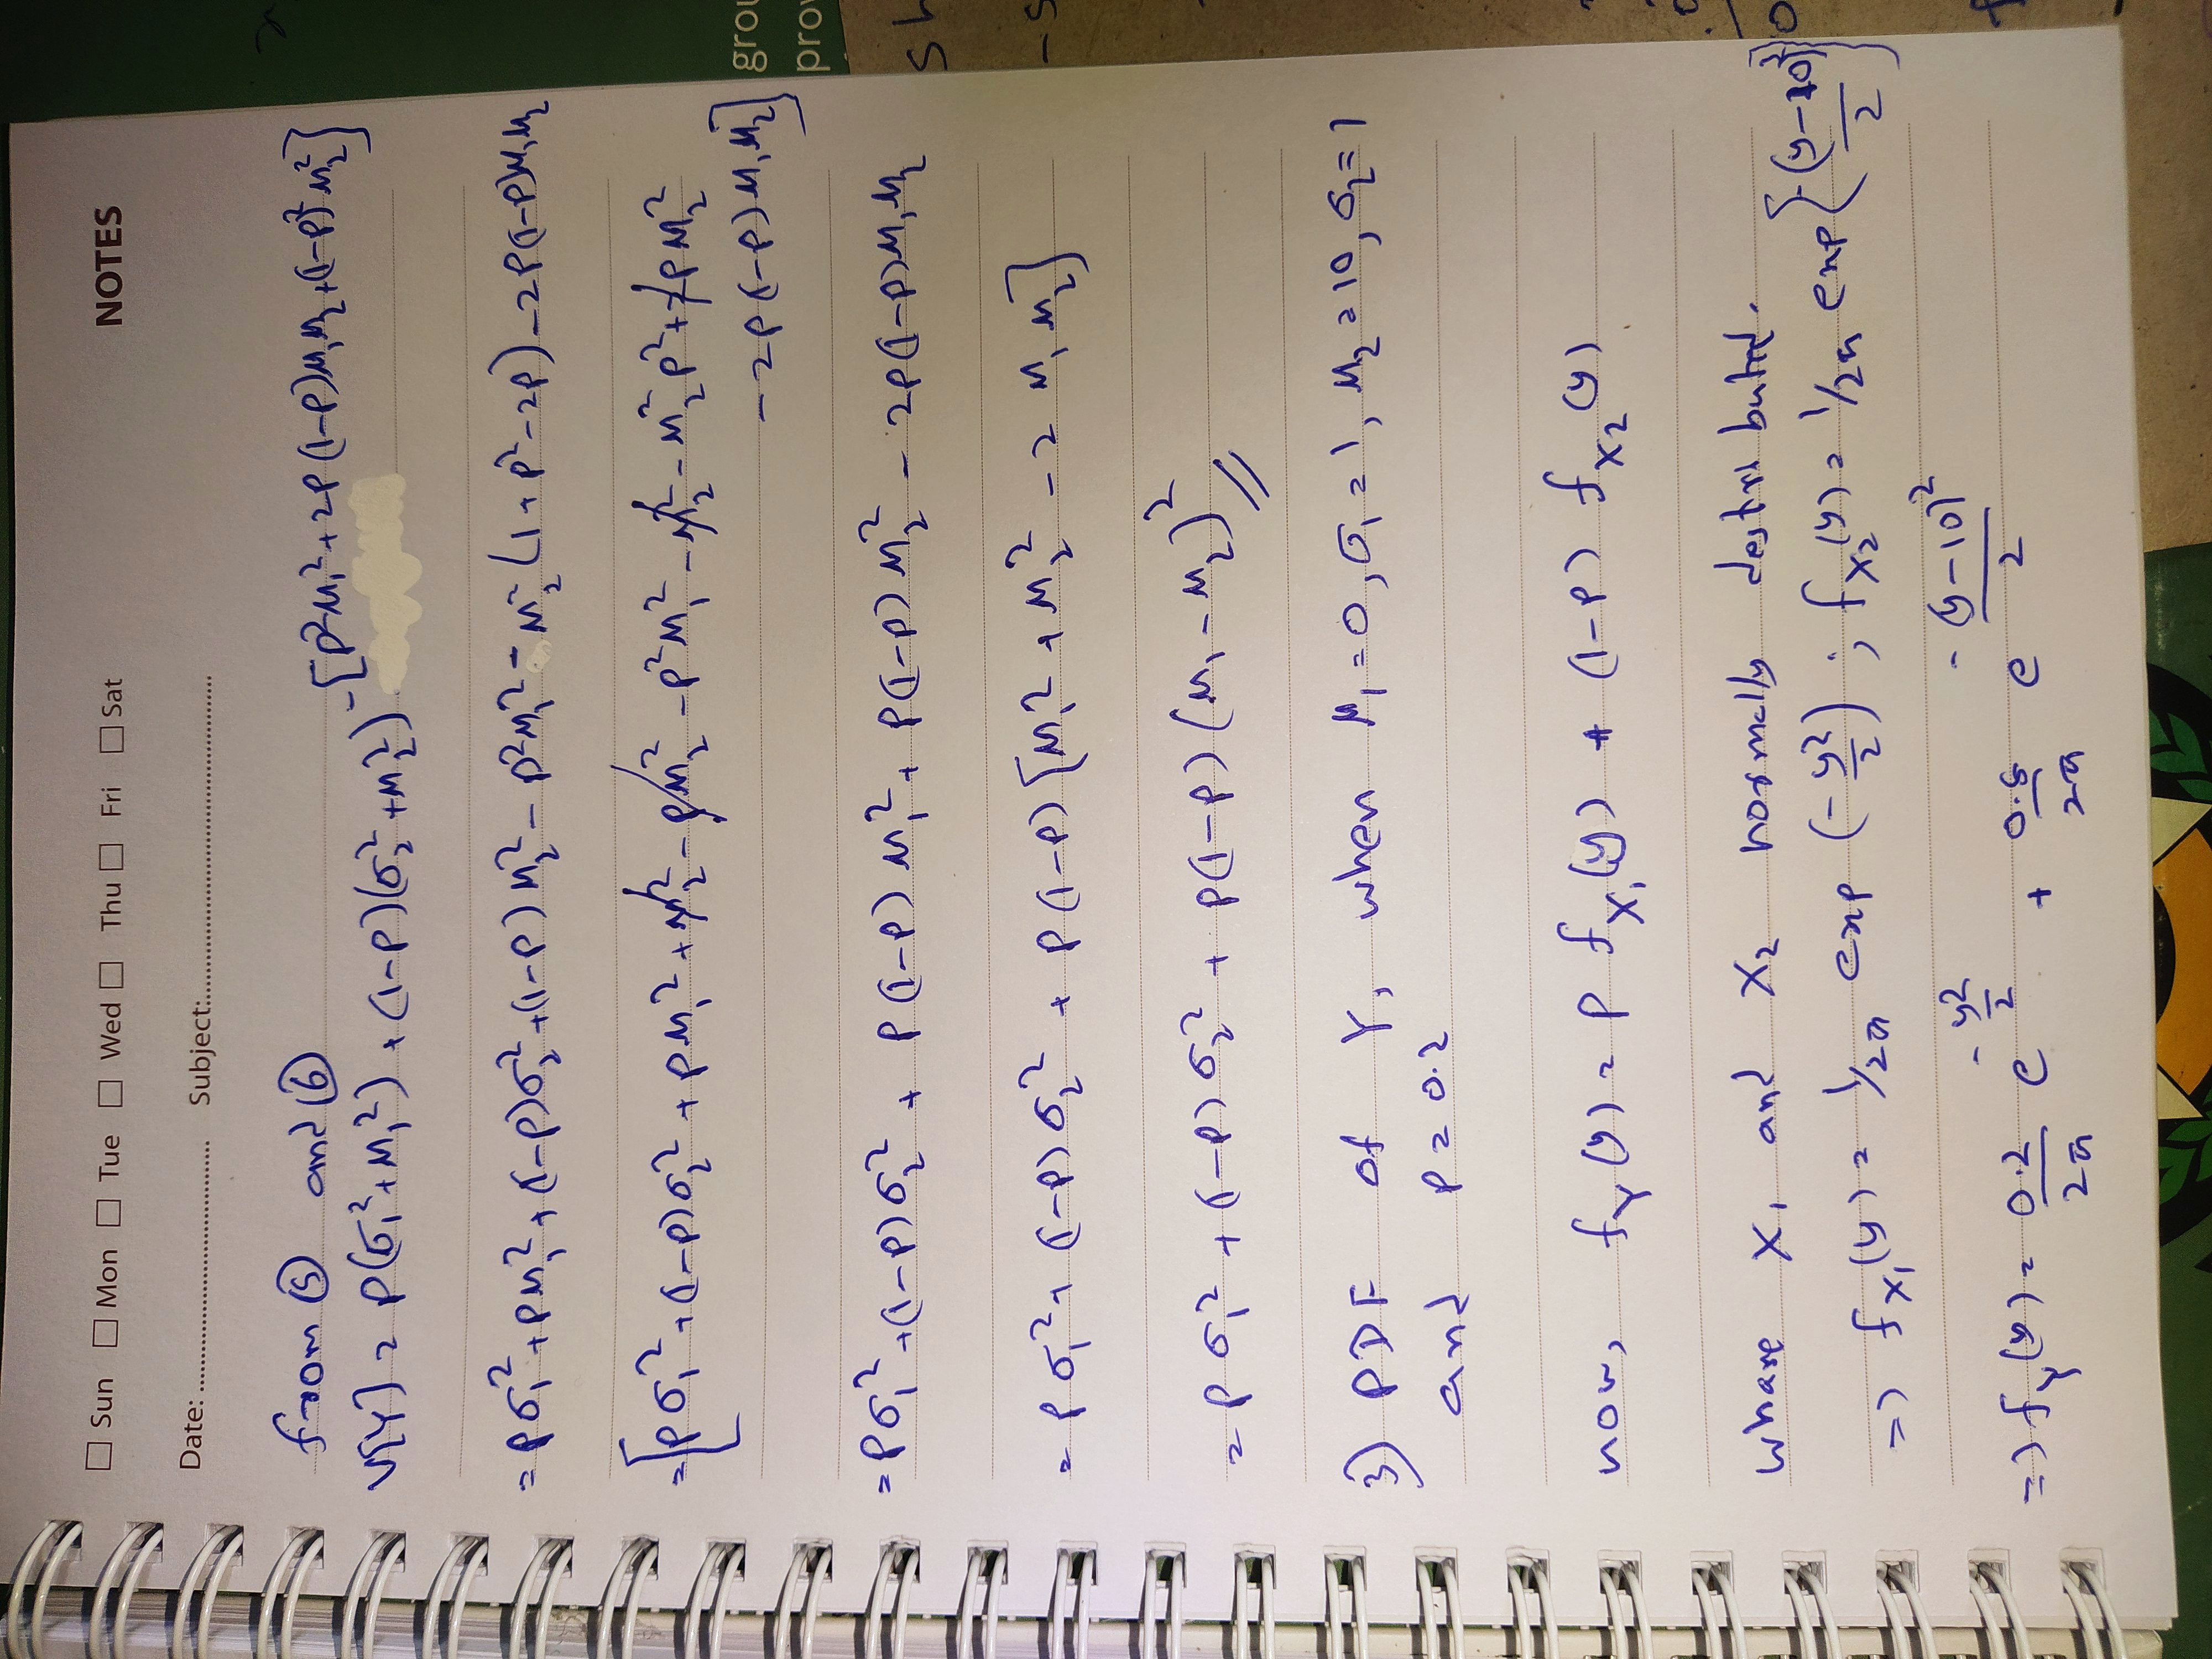 Sun Mon Tue Wed Thu Fri Sat NOTES
Date: ........................ Subject:........................
from ⑤ and ⑥
V[Y] = P(σ₁²+μ₁²) + (1-P)(σ₂²+μ₂²) - [P²μ₁²+2P(1-P)μ₁μ₂+(1-P)²μ₂²]
= Pσ₁²+Pμ₁²+(1-P)σ₂²+(1-P)μ₂² - P²μ₁² - μ₂²(1+P²-2P) - 2P(1-P)μ₁μ₂
= [Pσ₁²+(1-P)σ₂² + Pμ₁² + μ₂² - Pμ₂² - P²μ₁² - μ₂² - μ₂²P² + 2Pμ₂²
- 2P(1-P)μ₁μ₂]
= Pσ₁²+(1-P)σ₂² + P(1-P)μ₁² + P(1-P)μ₂² - 2P(1-P)μ₁μ₂
= Pσ₁² + (1-P)σ₂² + P(1-P)[μ₁² + μ₂² - 2μ₁μ₂]
= Pσ₁² + (1-P)σ₂² + P(1-P)(μ₁-μ₂)²
3) PDF of Y, when μ₁=0, σ₁=1, μ₂=10, σ₂=1
and P=0.2
now, f_Y(y) = P f_X₁(y) + (1-P) f_X₂(y)
whare X₁ and X₂ normally destributed.
=> f_X₁(y) = 1/2π exp(-y²/2) ; f_X₂(y) = 1/2π exp{-(y-10)²/2}
=> f_Y(y) = 0.2/2π e^-y²/2 + 0.8/2π e^-(y-10)²/2
grou
prov
sh